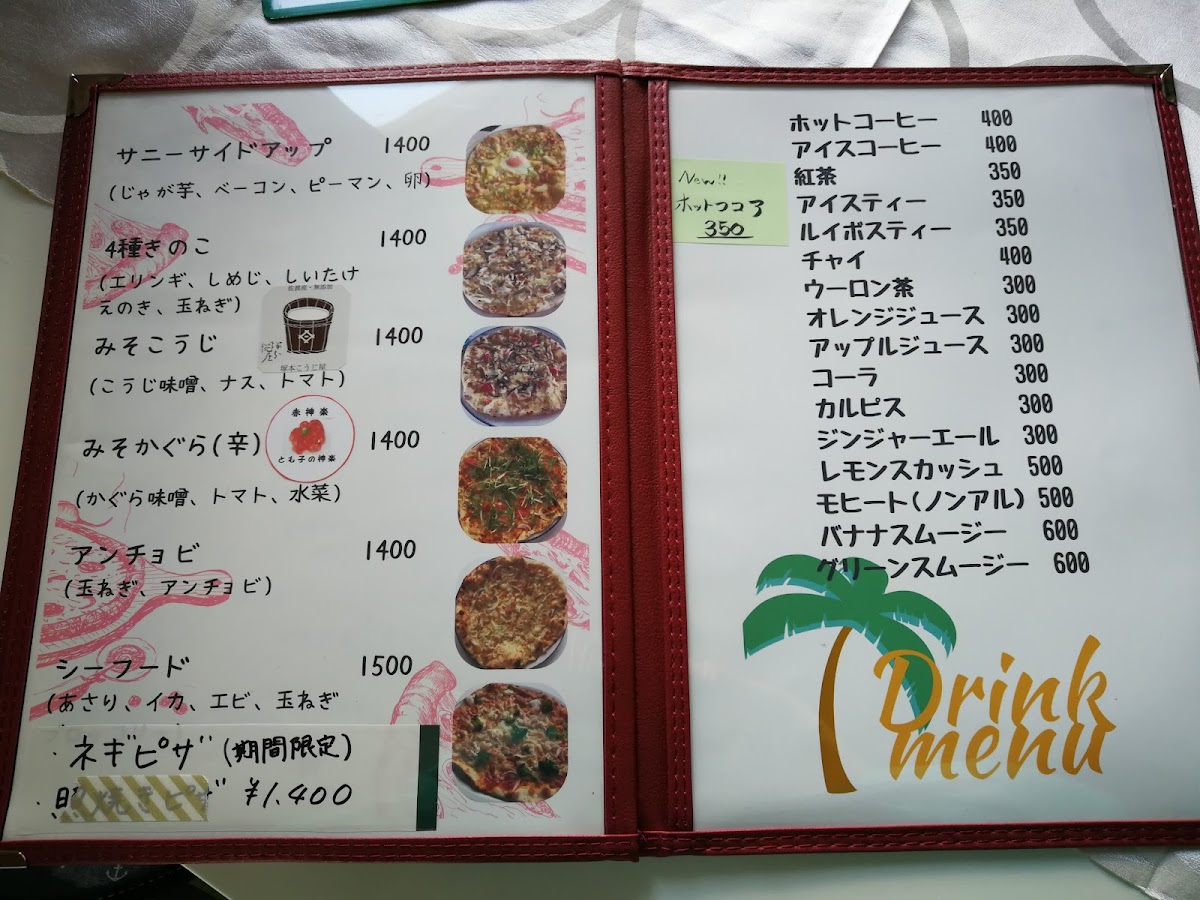 サニーサイドアップ 1400
(じゃが芋、ベーコン、ピーマン、卵)
4種きのこ 1400
(エリンギ、しめじ、しいたけ
えのき、玉ねぎ)
佐渡産・無添加
みそこうじ 1400
塚本こうじ屋
(こうじ味噌、ナス、トマト)
赤神楽
みそかぐら(辛) 1400
とも子の神楽
(かぐら味噌、トマト、水菜)
アンチョビ 1400
(玉ねぎ、アンチョビ)
シーフード 1500
(あさり、イカ、エビ、玉ねぎ
ネギピザ (期間限定)
焼きピザ ¥1.400
New!!
ホットココア
350
ホットコーヒー 400
アイスコーヒー 400
紅茶 350
アイスティー 350
ルイボスティー 350
チャイ 400
ウーロン茶 300
オレンジジュース 300
アップルジュース 300
コーラ 300
カルピス 300
ジンジャーエール 300
レモンスカッシュ 500
モヒート(ノンアル) 500
バナナスムージー 600
グリーンスムージー 600
Drink
menu